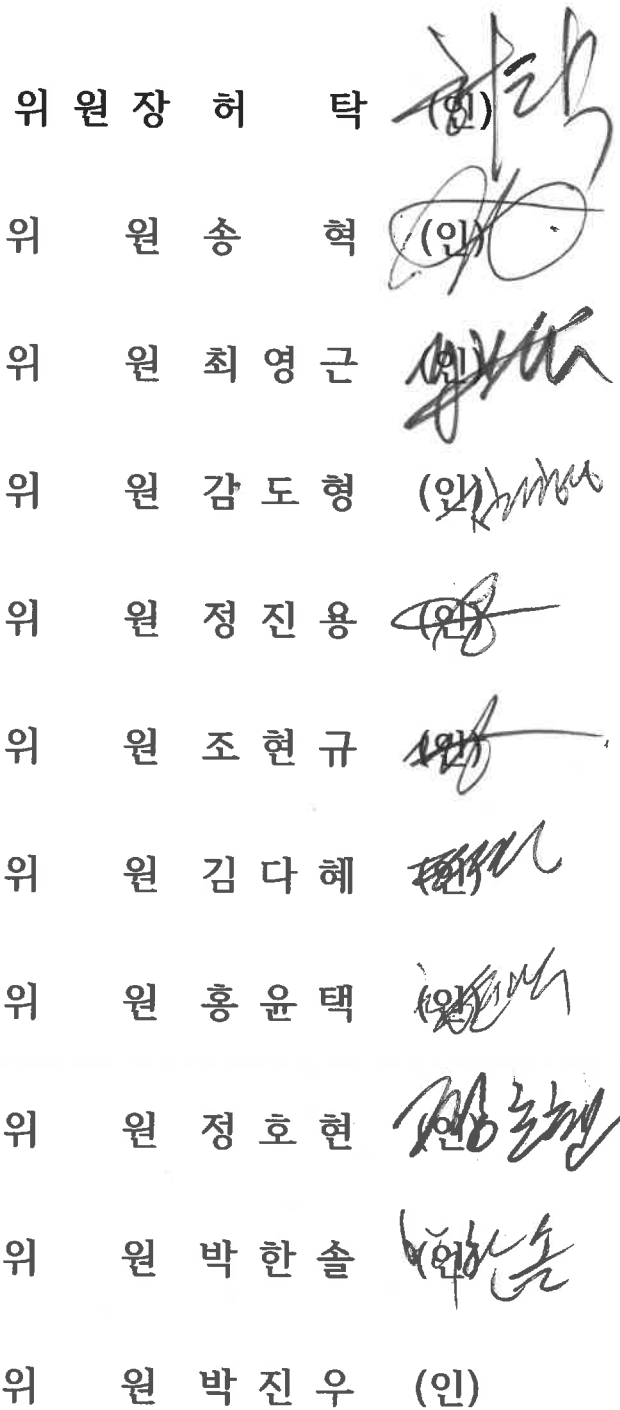 위 원 장 허 탁 (인)
위 원 송 혁 (인)
위 원 최 영 근 (인)
위 원 감 도 형 (인)
위 원 정 진 용 (인)
위 원 조 현 규 (인)
위 원 김 다 혜 (인)
위 원 홍 윤 택 (인)
위 원 정 호 현 (인)
위 원 박 한 솔 (인)
위 원 박 진 우 (인)